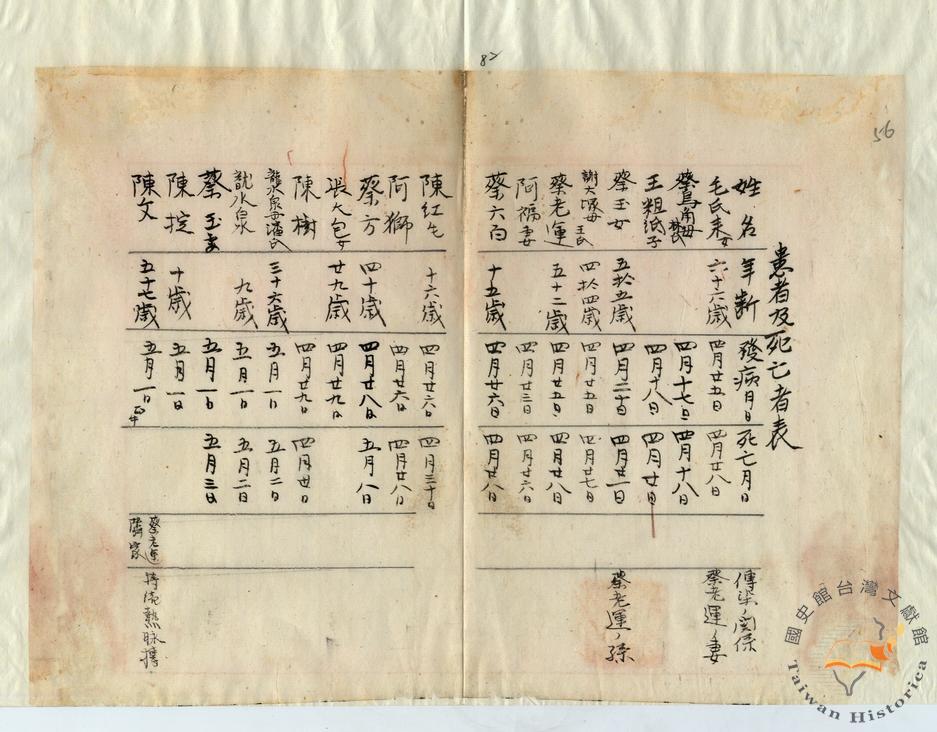 82
56
患者及死亡者表
姓名 年齢 發病月日 死亡月日 傳染ノ関係
毛氏来女 六十六歳 四月廿五日 四月廿八日 蔡老運ノ妻
蔡烏角母林氏 四月十七日 四月十八日
王粗紙子 四月十八日 四月廿日
蔡玉女 五拾五歳 四月二十日 四月廿一日 蔡老運ノ孫
謝大塚母王氏 四拾四歳 四月廿五日 四月廿七日
蔡老運 五十二歳 四月廿五日 四月廿八日
阿福妻 四月廿三日 四月廿六日
蔡六百 十五歳 四月廿六日 四月廿八日
陳紅 十六歳 四月廿六日 四月三十日
阿獅 四月廿六日 四月廿八日
蔡方 四十歳 四月廿八日 五月八日
張大包女 廿九歳 四月廿九日
陳樹 四月廿九日 四月卅日
龍水泉母潘氏 三十六歳 五月一日 五月二日
龍水泉 九歳 五月一日 五月二日
蔡玉 五月一日 五月三日
陳掟 十歳 五月一日
陳文 五十七歳 五月一日 蔡老運隣家
國史館台灣文獻館
Taiwan Historica